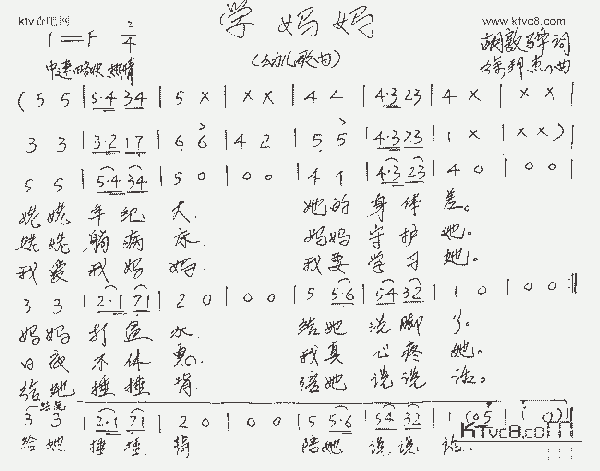 学妈妈
www.ktvc8.com
1=F 2/4
(幼儿歌曲)
胡敦骅 词
中速 略快 热情
曲
( 5 5 | 5·4 34 | 5 X | X X | 4 4 | 4·3 23 | 4 X | X X |
3 3 | 3·2 17 | 6 6 | 4 2 | 5 5 | 4·3 23 | 1 X | X X ) |
5 5 | 5·4 34 | 5 0 | 0 0 | 4 4 | 4·3 23 | 4 0 | 0 0 |
姥姥年纪大 她的身体差。
姥姥躺病床 妈妈守护她。
我爱我妈妈 我要学习她。
3 3 | 2·1 71 | 2 0 | 0 0 | 5 5·6 | 54 32 | 1 0 | 0 0 :||
妈妈打盆水 给她洗脚了。
日夜不休息 我真心疼她。
给她捶捶背 陪她说说话。
结尾
3 3 | 2·1 71 | 2 0 | 0 0 | 5 5·6 | 54 32 | 1
给她捶捶背 陪她说说话
KTvc8.com